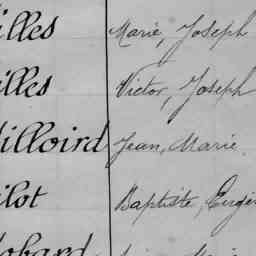 illes Marie, Joseph
illes Victor, Joseph
illoird Jean, Marie
ilot Baptiste, Eugèn
obard